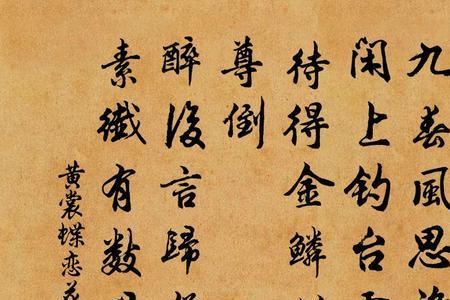 九春風思
闲上钓台
待得金鳞
尊倒
醉後言歸
素纖有数
黄裳蝶恋花